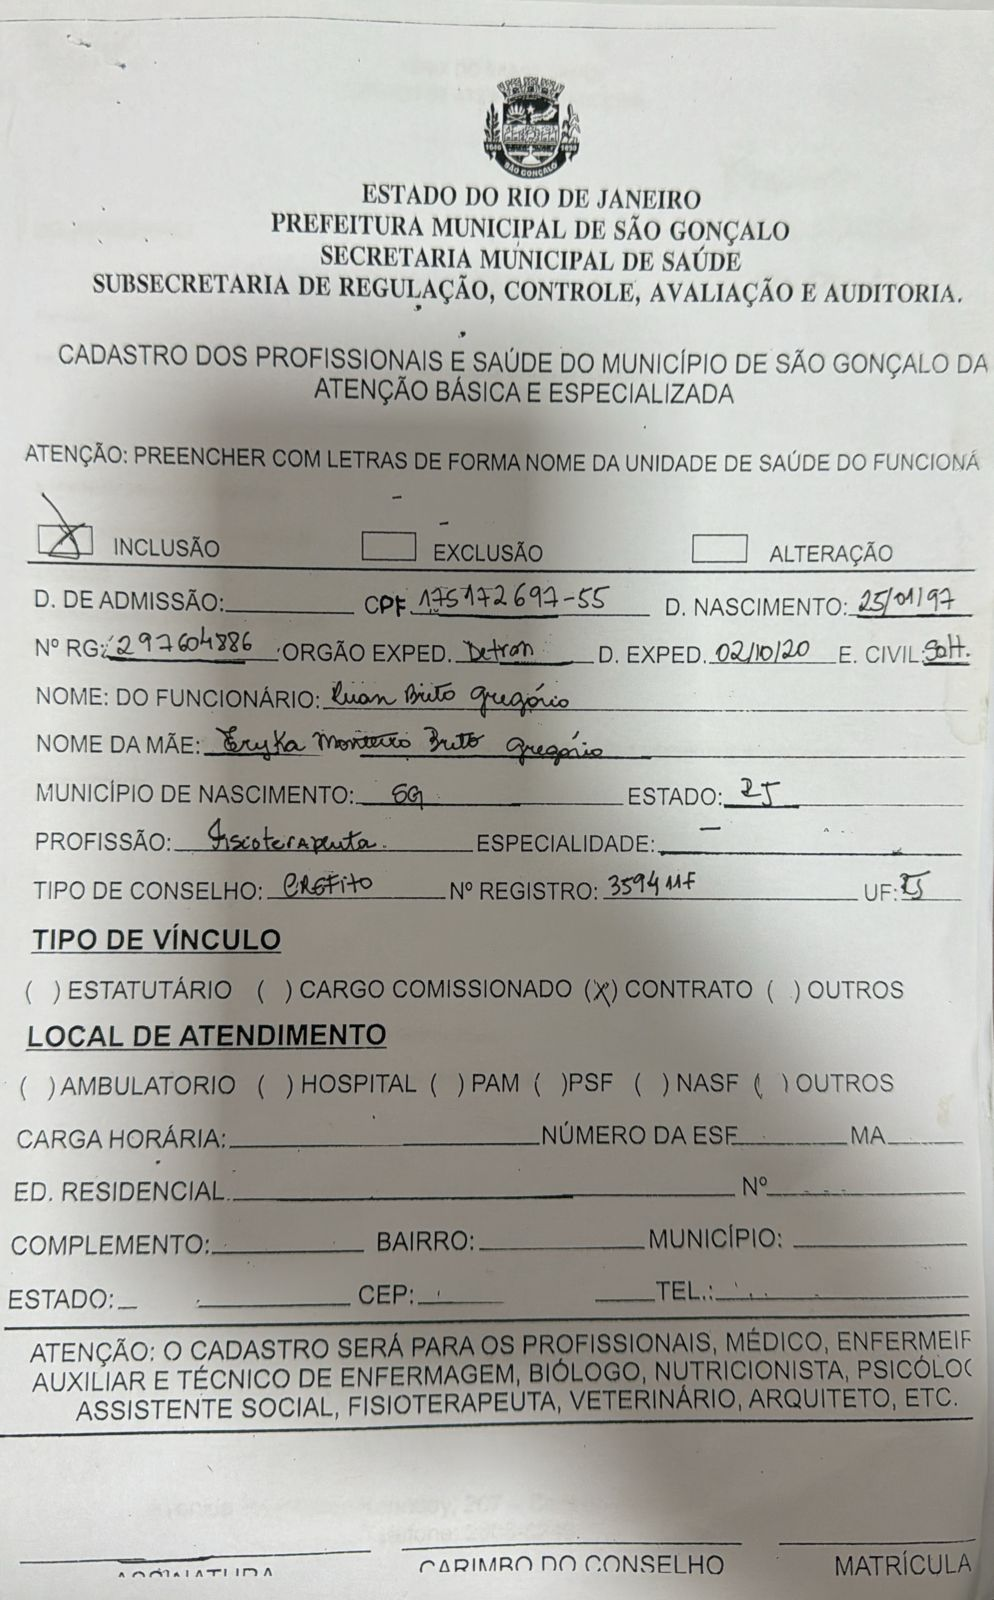 1646 1890
SÃO GONÇALO
ESTADO DO RIO DE JANEIRO
PREFEITURA MUNICIPAL DE SÃO GONÇALO
SECRETARIA MUNICIPAL DE SAÚDE
SUBSECRETARIA DE REGULAÇÃO, CONTROLE, AVALIAÇÃO E AUDITORIA.
CADASTRO DOS PROFISSIONAIS E SAÚDE DO MUNICÍPIO DE SÃO GONÇALO DA
ATENÇÃO BÁSICA E ESPECIALIZADA
ATENÇÃO: PREENCHER COM LETRAS DE FORMA NOME DA UNIDADE DE SAÚDE DO FUNCIONÁ
X INCLUSÃO EXCLUSÃO ALTERAÇÃO
D. DE ADMISSÃO: CPF 175172697-55 D. NASCIMENTO: 25/01/97
Nº RG: 297604886 ORGÃO EXPED. Detran D. EXPED. 02/10/20 E. CIVIL: Solt.
NOME: DO FUNCIONÁRIO: Ruan Brito Gregório
NOME DA MÃE: Eryka Monteiro Brito Gregório
MUNICÍPIO DE NASCIMENTO: SG ESTADO: RJ
PROFISSÃO: Fiscoterapeuta. ESPECIALIDADE: —
TIPO DE CONSELHO: CREFITO Nº REGISTRO: 359411F UF: RJ
TIPO DE VÍNCULO
( ) ESTATUTÁRIO ( ) CARGO COMISSIONADO (X) CONTRATO ( ) OUTROS
LOCAL DE ATENDIMENTO
( ) AMBULATORIO ( ) HOSPITAL ( ) PAM ( ) PSF ( ) NASF ( ) OUTROS
CARGA HORÁRIA: NÚMERO DA ESF MA
ED. RESIDENCIAL Nº
COMPLEMENTO: BAIRRO: MUNICÍPIO:
ESTADO: CEP: TEL.:
ATENÇÃO: O CADASTRO SERÁ PARA OS PROFISSIONAIS, MÉDICO, ENFERMEIR
AUXILIAR E TÉCNICO DE ENFERMAGEM, BIÓLOGO, NUTRICIONISTA, PSICÓLOG
ASSISTENTE SOCIAL, FISIOTERAPEUTA, VETERINÁRIO, ARQUITETO, ETC.
ASSINATURA CARIMBO DO CONSELHO MATRÍCULA